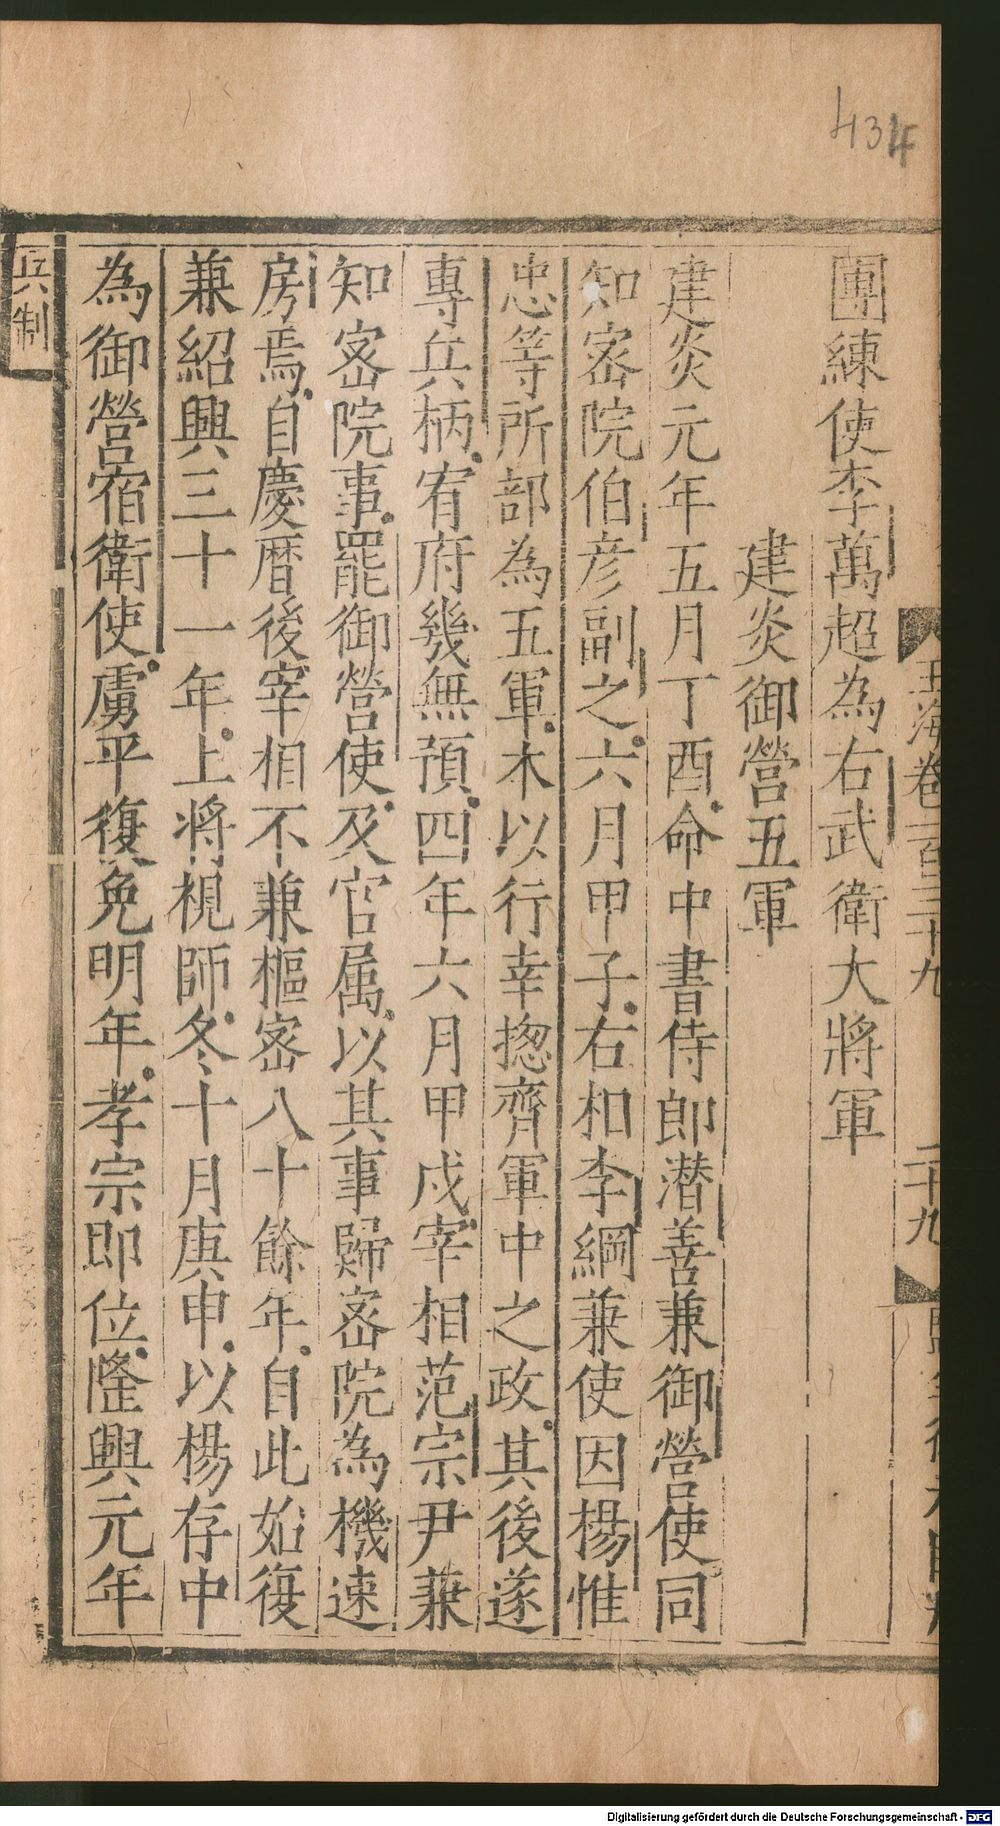 434
玉海卷一百三十九
二十九
團練使李萬超為右武衛大將軍
建炎御營五軍
建炎元年五月丁酉命中書侍郎潜善兼御營使同
知宻院伯彦副之六月甲子右相李綱兼使因楊惟
忠等所部為五軍本以行幸揔齊軍中之政其後遂
專兵柄宥府幾無預四年六月甲戌宰相范宗尹兼
知宻院事罷御營使及官属以其事歸宻院為機速
房焉自慶曆後宰相不兼樞宻八十餘年自此始復
兼紹興三十一年上將視師冬十月庚申以楊存中
為御營宿衛使虜平復免明年孝宗即位隆興元年
兵制
Digitalisierung gefördert durch die Deutsche Forschungsgemeinschaft - DFG